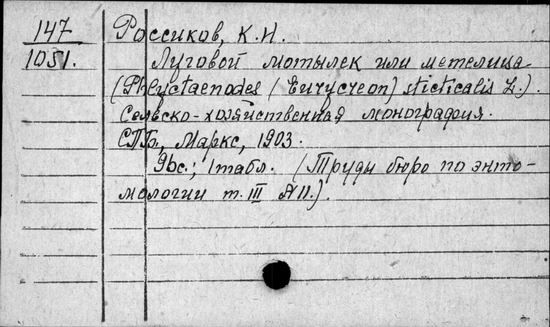 147 Россиков, К.Н.
1051. Луговой мотылек или метелица
(Phlyctaenodes (Eurycreon) sticticalis L.).
Сельско-хозяйственная монография.
СПБ, Маркс, 1903.
96с.; 1табл. (Труды бюро по энто-
мологии т. III №11.).